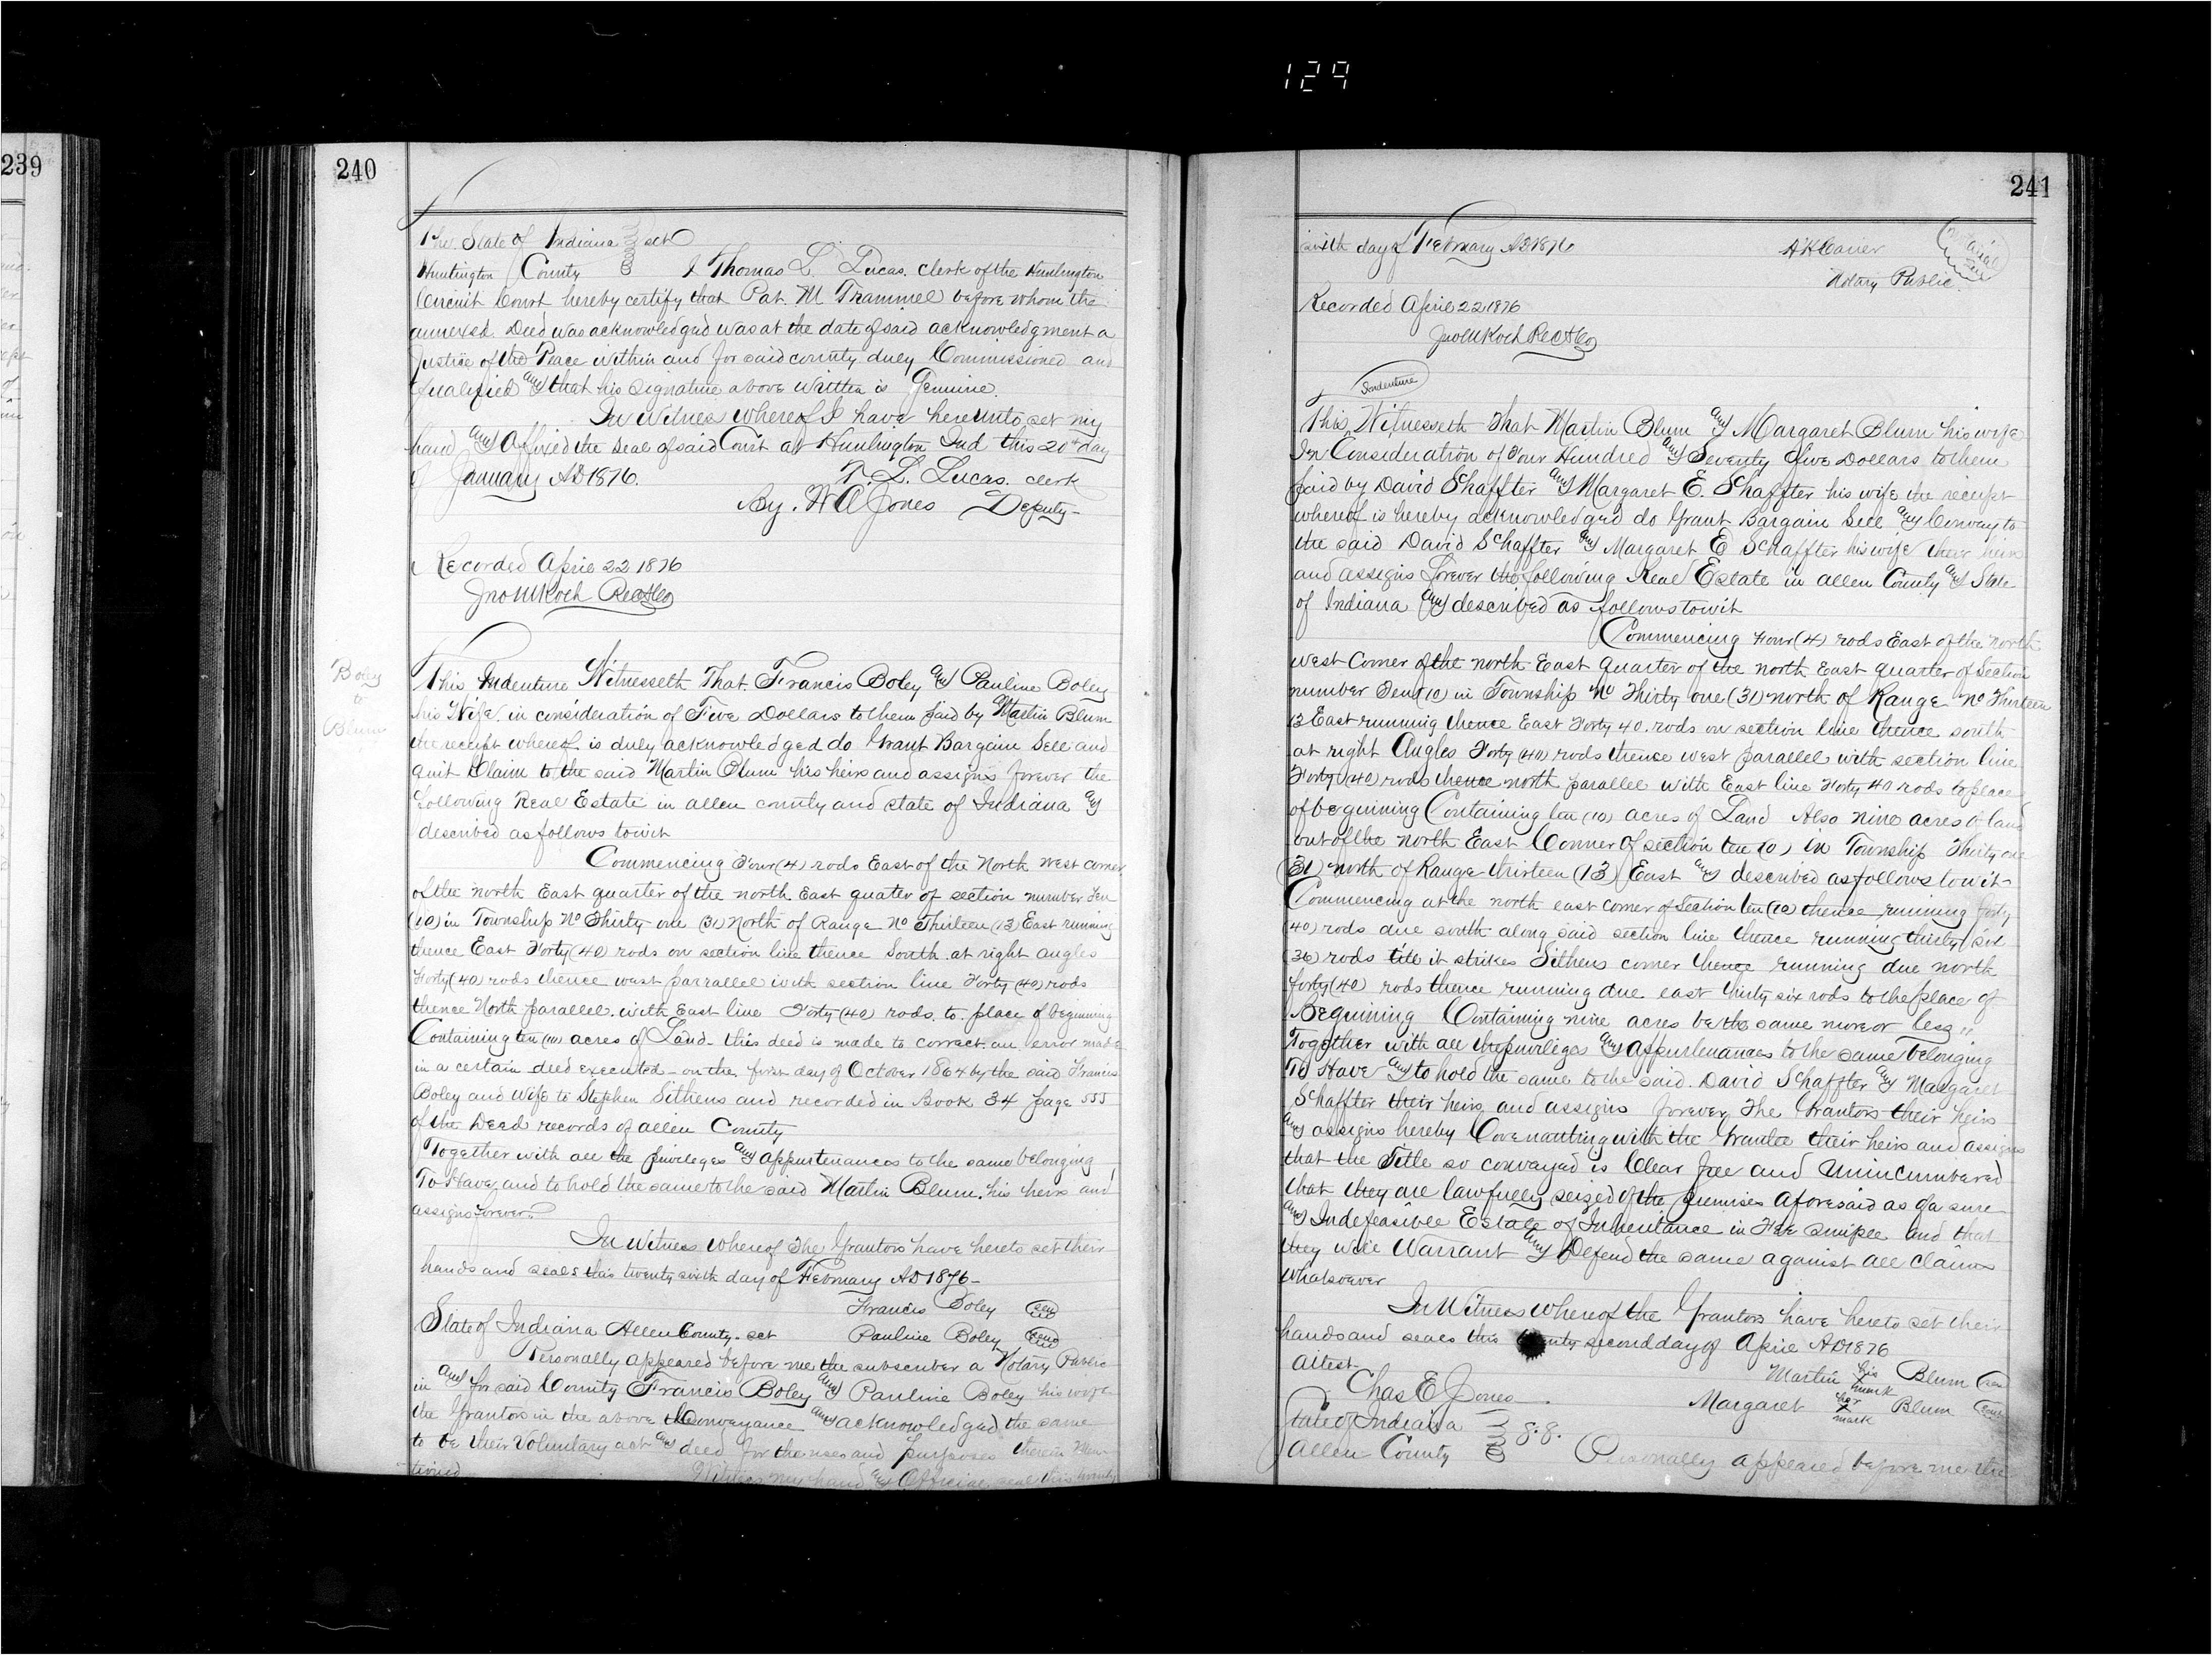 129
239
240
The State of Indiana sct
Huntington County I Thomas L. Lucas. clerk of the Huntington
Circuit Court hereby certify that Pat. M Trammel before whom the
annexed Deed was acknowledged was at the date of said acknowledgment a
Justice of the Peace within and for said county duly Commissioned and
qualified and that his signature above written is Genuine.
In Witness whereof I have hereunto set my
hand and Affixed the Seal of said Court at Huntington Ind this 20th day
of January AD 1876. T. L. Lucas. clerk
By. H A Jones Deputy
Recorded April 22 1876
Jno M Koch RecACo
Boley
to
Blum
This Indenture Witnesseth That. Francis Boley and Pauline Boley
his Wife. in consideration of Five Dollars to them paid by Martin Blum
the receipt whereof is duly acknowledged do Grant Bargain Sell and
quit Claim to the said Martin Blum his heirs and assigns forever the
following Real Estate in allen county and state of Indiana and
described as follows towit
Commencing Four (4) rods East of the North West corner
of the north East quarter of the north East quater of section number Ten
(10) in Township No Thirty one (31) North of Range No Thirteen (13) East running
thence East Forty (40) rods on section line thence South. at right angles
Forty (40) rods thence west parrallel with section line Forty (40) rods
thence North parallel. with East line Forty (40) rods. to. place of beginning
Containing ten (10) acres of Land- this deed is made to correct an error made
in a certain deed executed on the first day of October 1864 by the said Francis
Boley and Wife to Stephen Sithens and recorded in Book 34 page 555
of the Deed records of allen County
Together with all the privileges and appurtenances to the same belonging
To Have and to hold the same to the said Martin Blum. his heirs and
assigns forever.
In Witness whereof The Grantors have hereto set their
hands and seals this twenty sixth day of February AD 1876-
Francis Boley seal
State of Indiana Allen County. sct Pauline Boley seal
Personally appeared before me the subscriber a Notary Public
in and for said County Francis Boley and Pauline Boley his wife
the Grantors in the above Conveyance and acknowledged the same
to be their Voluntary act and deed for the uses and purposes therein Men-
tioned Witness my hand and Official seal this twenty
241
sixth day of February AD 1876 A H Carier
Notary Public.
Recorded April 22 1876
Jno M Koch RecACo
Indenture
This Witnesseth That Martin Blum and Margaret Blum his wife
In Consideration of Four Hundred and Seventy five Dollars to them
paid by David Shaffter and Margaret E. Shaffter his wife the receipt
whereof is hereby acknowledged do Grant Bargain Sell and Convey to
the said David Schaffter and Margaret E Schaffter his wife their heirs
and assigns forever the following Real Estate in allen County and State
of Indiana and described as follows towit
Commencing Four (4) rods East of the North
West Corner of the north East quarter of the north East quarter of Section
number Ten (10) in Township No Thirty one (31) north of Range No Thirteen
13 East running thence East Forty 40. rods on section line thence south
at right Angles Forty (40) rods thence west parallel with section line
Forty (40) rods thence north parallel with East line Forty 40 rods to place
of beguining Containing ten (10) acres of Land Also nine acres of land
out of the north East Conner of section ten (10) in Township Thirty one
(31) north of Range thirteen (13) East and described as follows towit-
Commencing at the north east corner of Section ten (10) thence running forty
(40) rods due south along said section line thence running thirty six
(36) rods till it strikes Sithens corner thence running due north
forty (40) rods thence running due east thirty six rods to the place of
Beguining Containing nine acres be the same more or less,,
Together with all the priviliges and appurtenances to the same belonging
To Have and to hold the same to the said. David Schaffter and Margaret
Schaffter their heirs and assigns forever The Grantors their heirs
and assigns hereby Covenanting with the Grantee their heirs and assigns
that the Title so convayed is Clear free and Unincumbered
that they are lawfully seized of the premises aforesaid as of a sure
and Indefeasible Estate of Inheritance in Fee simple and that
they will Warrant and Defend the same against all claims
whatsoever
In Witness whereof the Grantors have hereto set their
hands and seals this second day of April AD 1876
Attest
Martin his mark Blum
Chas E Jones
Margaret her mark Blum
State of Indiana
Allen County S.S. Personally appeared before me the